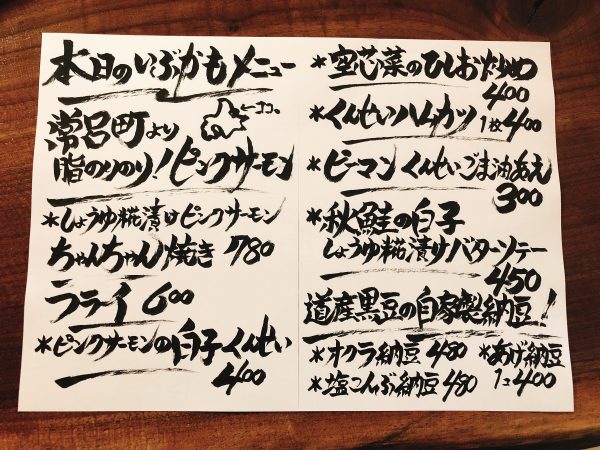 本日のいぶかもメニュー
常呂町より
←ココ。
脂のりのり!ピンクサーモン
*しょうゆ糀漬けピンクサーモン
ちゃんちゃん焼き 780
フライ 600
*ピンクサーモンの白子くんせい
400
*空芯菜のひしお炒め
400
*くんせいハムカツ 1枚400
*ピーマンくんせいごま油あえ
300
*秋鮭の白子
しょうゆ糀漬けバターソテー
450
道産黒豆の自家製納豆!
*オクラ納豆 480
*塩こんぶ納豆 480
*あげ納豆
1コ400